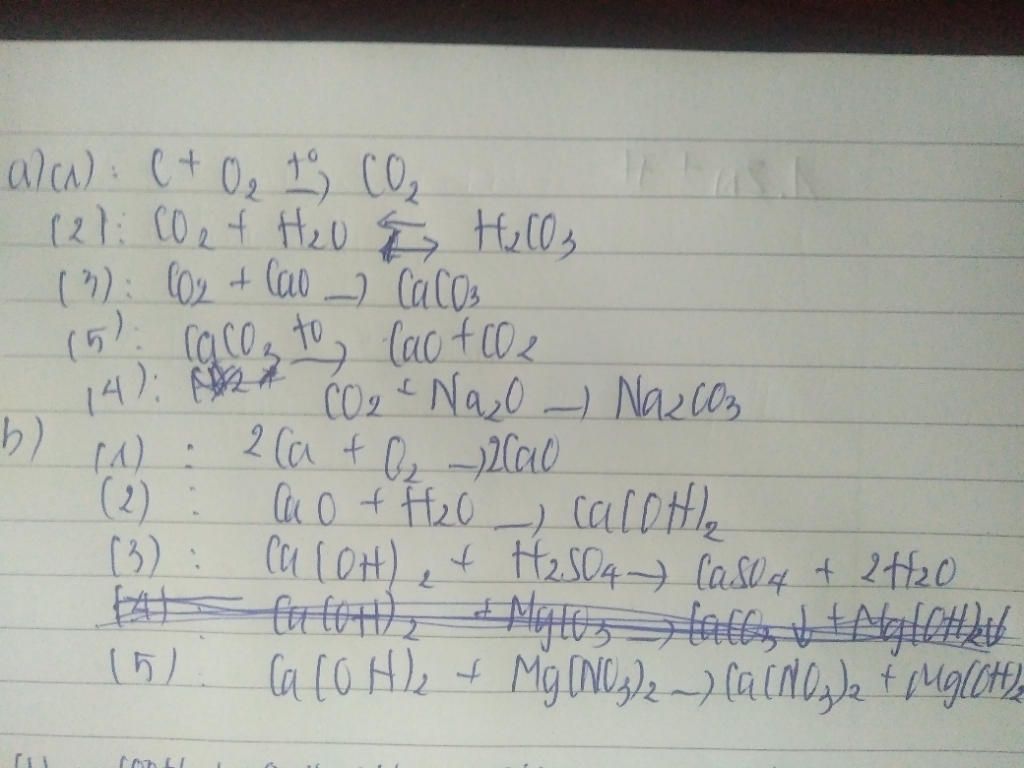 a) (1): C + O2 t° → CO2
(2): CO2 + H2O ⇌ H2CO3
(3): CO2 + CaO → CaCO3
(5): CaCO3 to → CaO + CO2
(4): CO2 + Na2O → Na2CO3
b) (1) : 2Ca + O2 → 2CaO
(2) : CaO + H2O → Ca(OH)2
(3) : Ca(OH)2 + H2SO4 → CaSO4 + 2H2O
(4) Ca(OH)2 + MgCO3 → CaCO3 ↓ + Mg(OH)2↓
(5) : Ca(OH)2 + Mg(NO3)2 → Ca(NO3)2 + Mg(OH)2